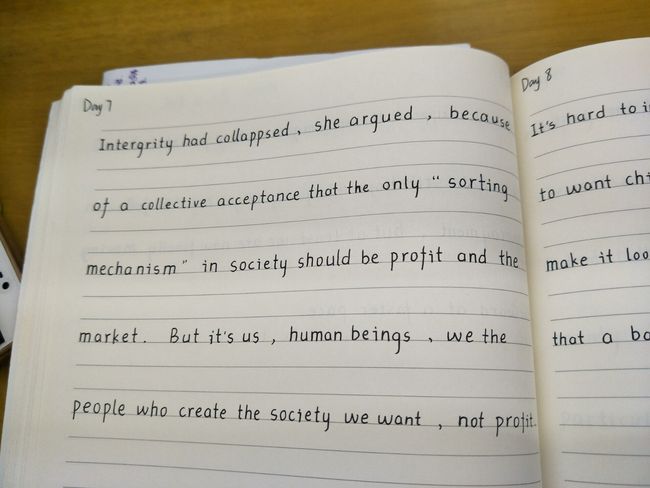 Day 7
Intergrity had collappsed, she argued, because
of a collective acceptance that the only "sorting
mechanism" in society should be profit and the
market. But it's us, human beings, we the
people who create the society we want, not profit.
Day 8
It's hard to i
to want chi
make it loo
that a ba